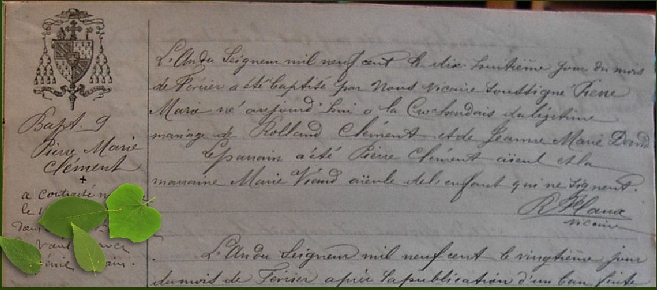 Bapt 9
Pierre Marie
Clément
a contracté
le
L'An du Seigneur mil neuf cent le dix huitième jour du mois
de Février a été baptisé par Nous vicaire soussigné Pierre
Marie né aujourd'hui a la du légitime
mariage de Rolland Clément et de Jeanne Marie
Le parrain a été Pierre Clément aieul et la
marraine Marie Viaud aieule de l'enfant qui ne signent.
vicaire
L'An du Seigneur mil neuf cent le vingtième jour
du mois de Février après la publication d'un ban faite